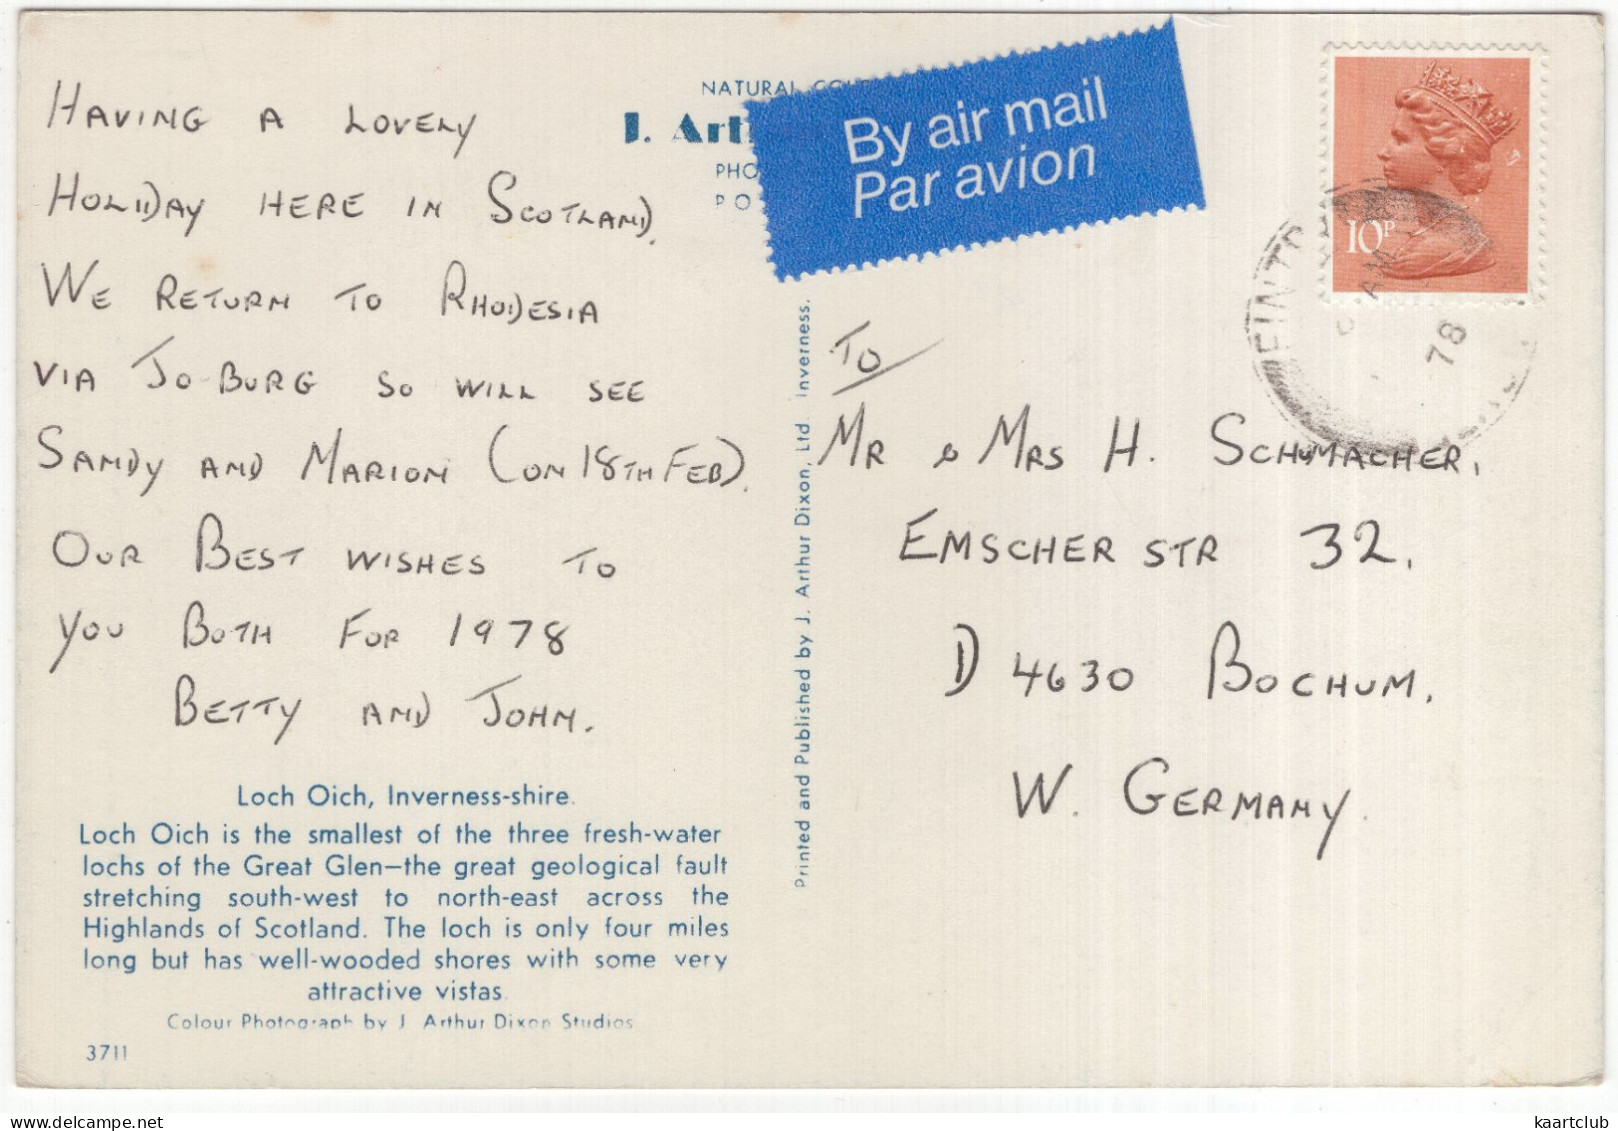 HAVING A LOVELY
HOLIDAY HERE IN SCOTLAND.
WE RETURN TO RHODESIA
VIA JO-BURG SO WILL SEE
SANDY AND MARION (ON 18TH FEB).
OUR BEST WISHES TO
YOU BOTH FOR 1978
BETTY AND JOHN.
Loch Oich, Inverness-shire.
Loch Oich is the smallest of the three fresh-water
lochs of the Great Glen—the great geological fault
stretching south-west to north-east across the
Highlands of Scotland. The loch is only four miles
long but has well-wooded shores with some very
attractive vistas.
Colour Photograph by J. Arthur Dixon Studios
3711
NATURAL
J. Art
PHO
PO
By air mail
Par avion
Printed and Published by J. Arthur Dixon, Ltd. Inverness.
10P
AM
78
TO
MR & MRS H. SCHUMACHER,
EMSCHER STR 32.
D 4630 BOCHUM.
W. GERMANY.
kaartclub